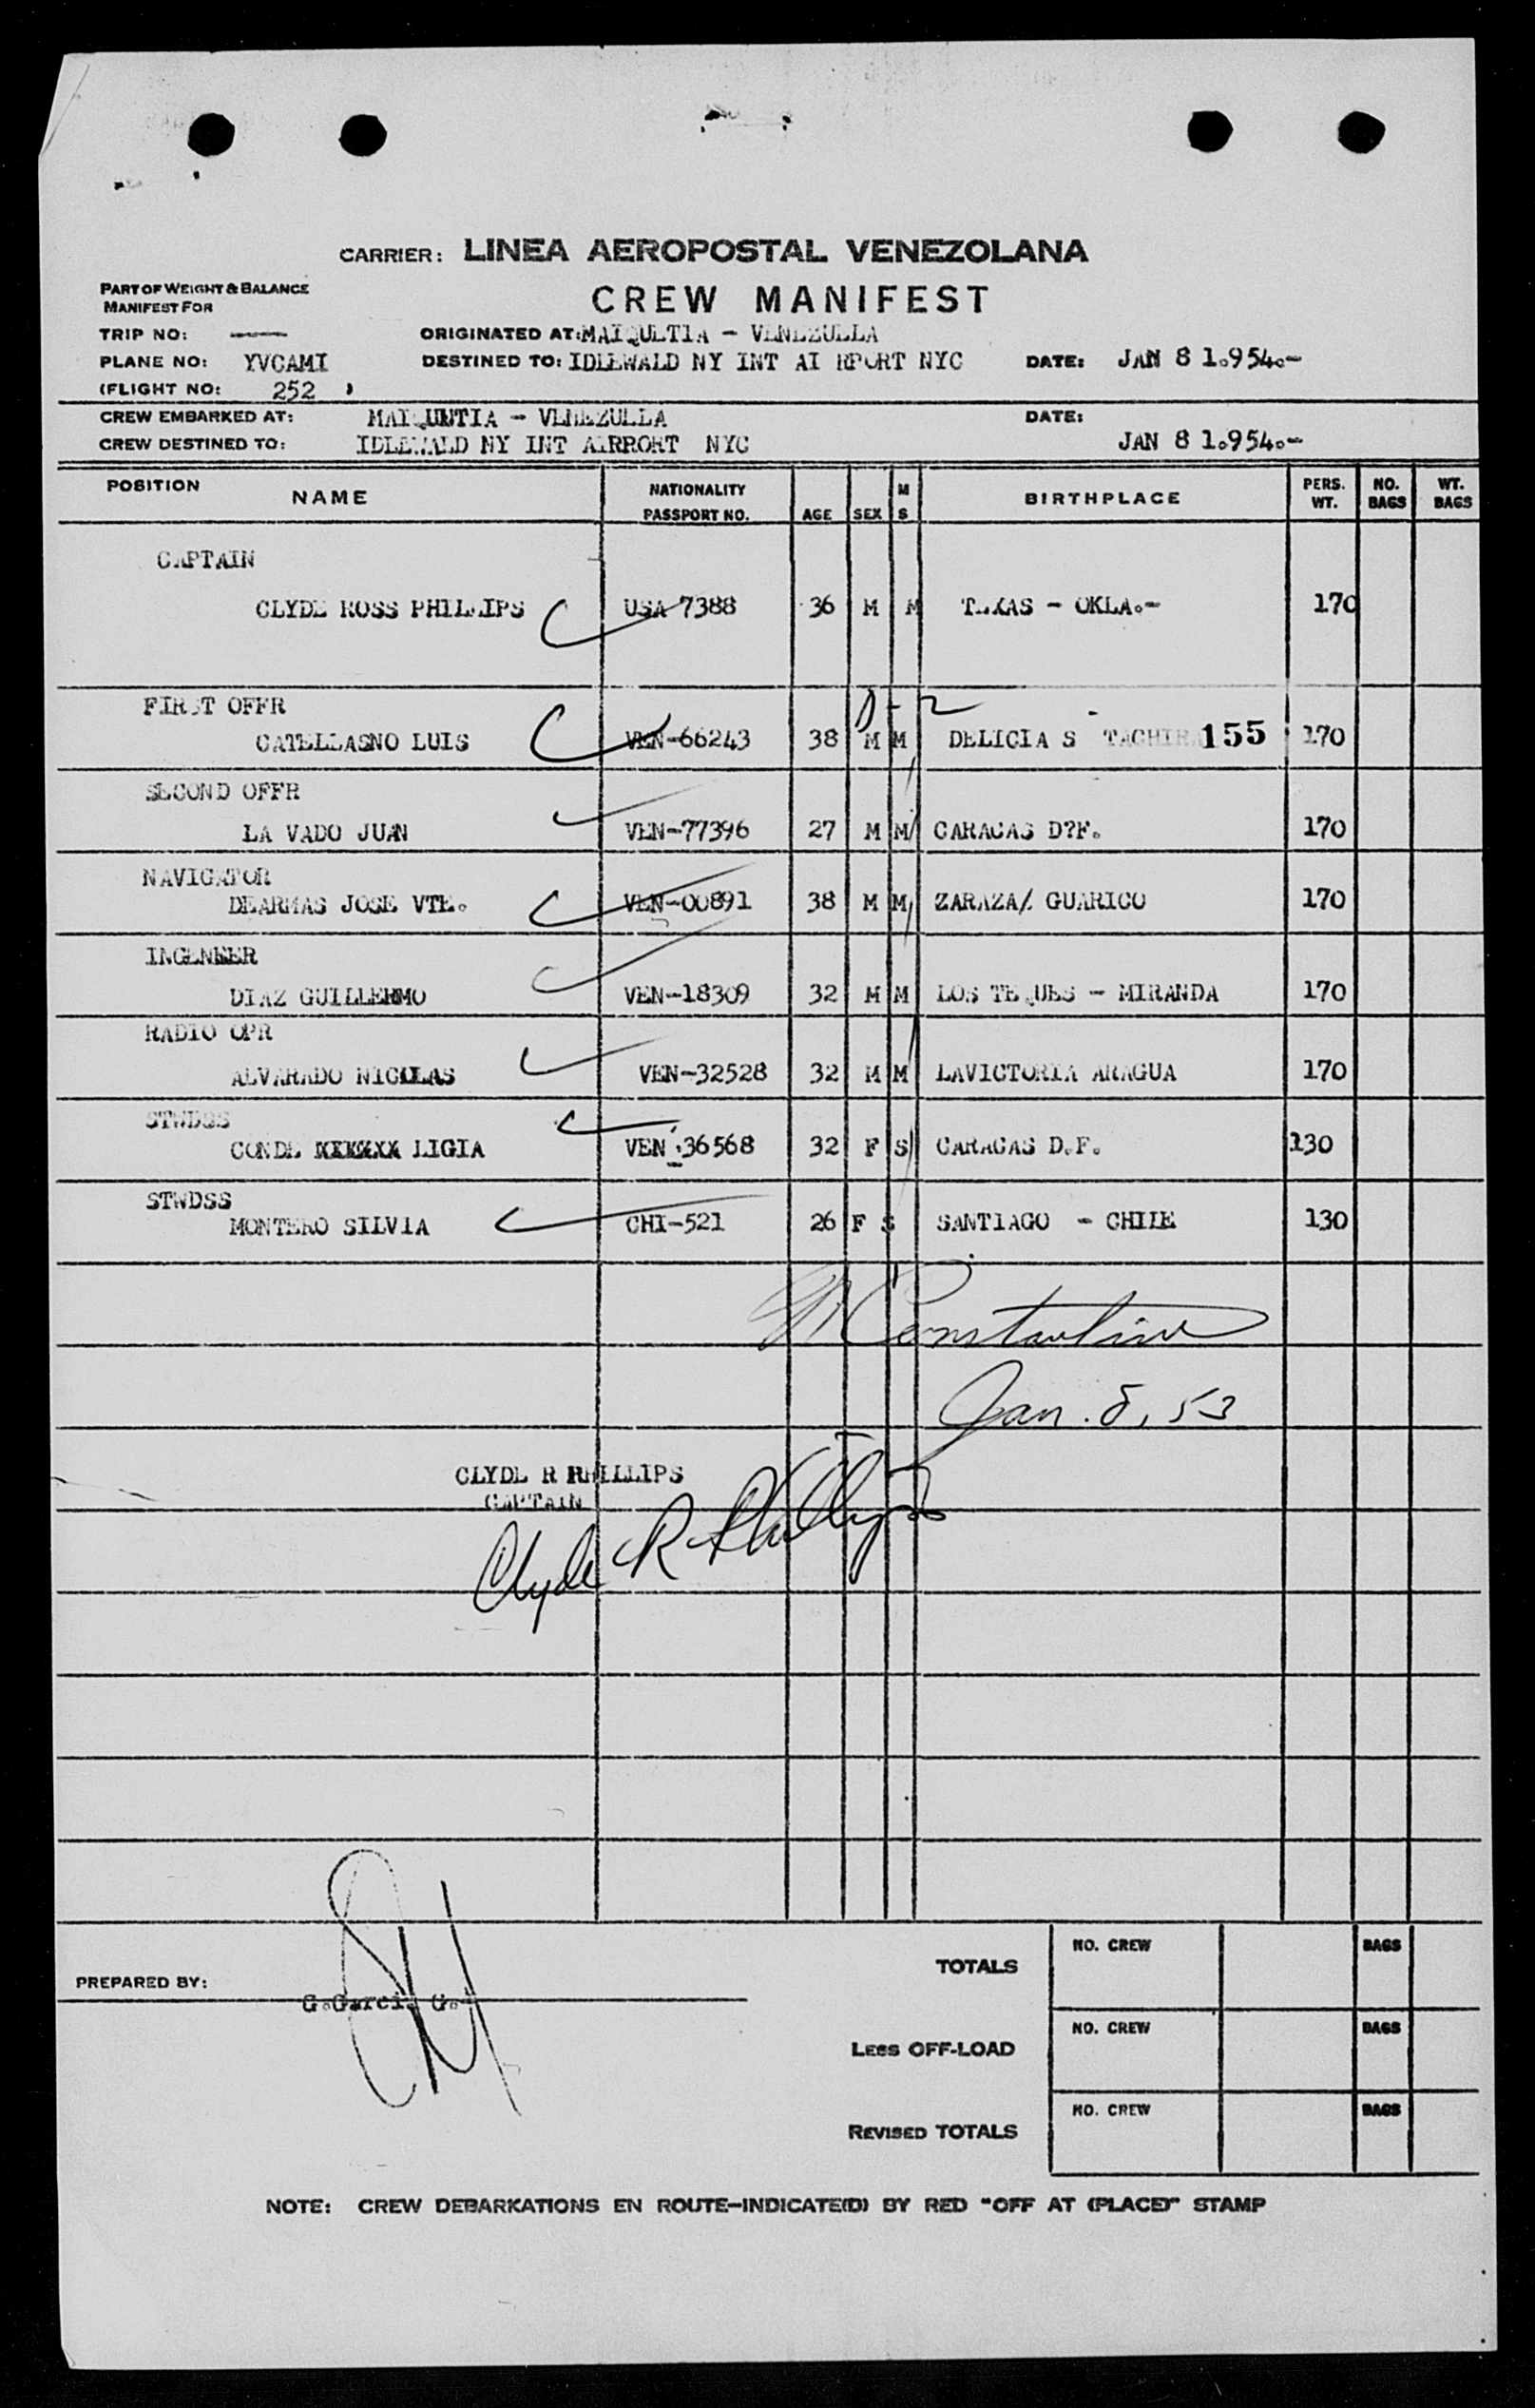 CARRIER: LINEA AEROPOSTAL VENEZOLANA
PART OF WEIGHT & BALANCE
MANIFEST FOR
CREW MANIFEST
TRIP NO: ——
ORIGINATED AT: MAIQUETIA - VENEZUELLA
PLANE NO: YVCAMI
DESTINED TO: IDLEWALD NY INT AI RPORT NYC
DATE: JAN 8 1.954.-
(FLIGHT NO: 252 )
CREW EMBARKED AT: MAIQUETIA - VENEZULLA
DATE:
CREW DESTINED TO: IDLEWALD NY INT AIRPORT NYC
JAN 8 1.954.-
POSITION NAME NATIONALITY PASSPORT NO. AGE SEX M S BIRTHPLACE PERS. WT. NO. BAGS WT. BAGS
CAPTAIN
CLYDE ROSS PHILLIPS USA 7388 36 M M TEXAS - OKLA.- 170
FIRST OFFR
CATELLASNO LUIS VEN-66243 38 M M DELICIA S TACHIRA 155 170
SECOND OFFR
LA VADO JUAN VEN-77396 27 M M CARACAS D?F. 170
NAVIGATOR
DEARMAS JOSE VTE. VEN-00891 38 M M ZARAZA/. GUARICO 170
INGENEER
DIAZ GUILLERMO VEN-18309 32 M M LOS TEQUES - MIRANDA 170
RADIO OPR
ALVARADO NICOLAS VEN-32528 32 M M LAVICTORIA ARAGUA 170
STWDSS
CONDE LIGIA VEN-36568 32 F S CARACAS D.F. 130
STWDSS
MONTERO SILVIA CHI-521 26 F S SANTIAGO - CHILE 130
Constantine
Jan. 8, 53
CLYDE R PHILLIPS
CAPTAIN
Clyde R Phillips
PREPARED BY: G.Garcia G.
TOTALS NO. CREW BAGS
LESS OFF-LOAD NO. CREW BAGS
REVISED TOTALS NO. CREW BAGS
NOTE: CREW DEBARKATIONS EN ROUTE-INDICATE(D) BY RED "OFF AT (PLACE)" STAMP